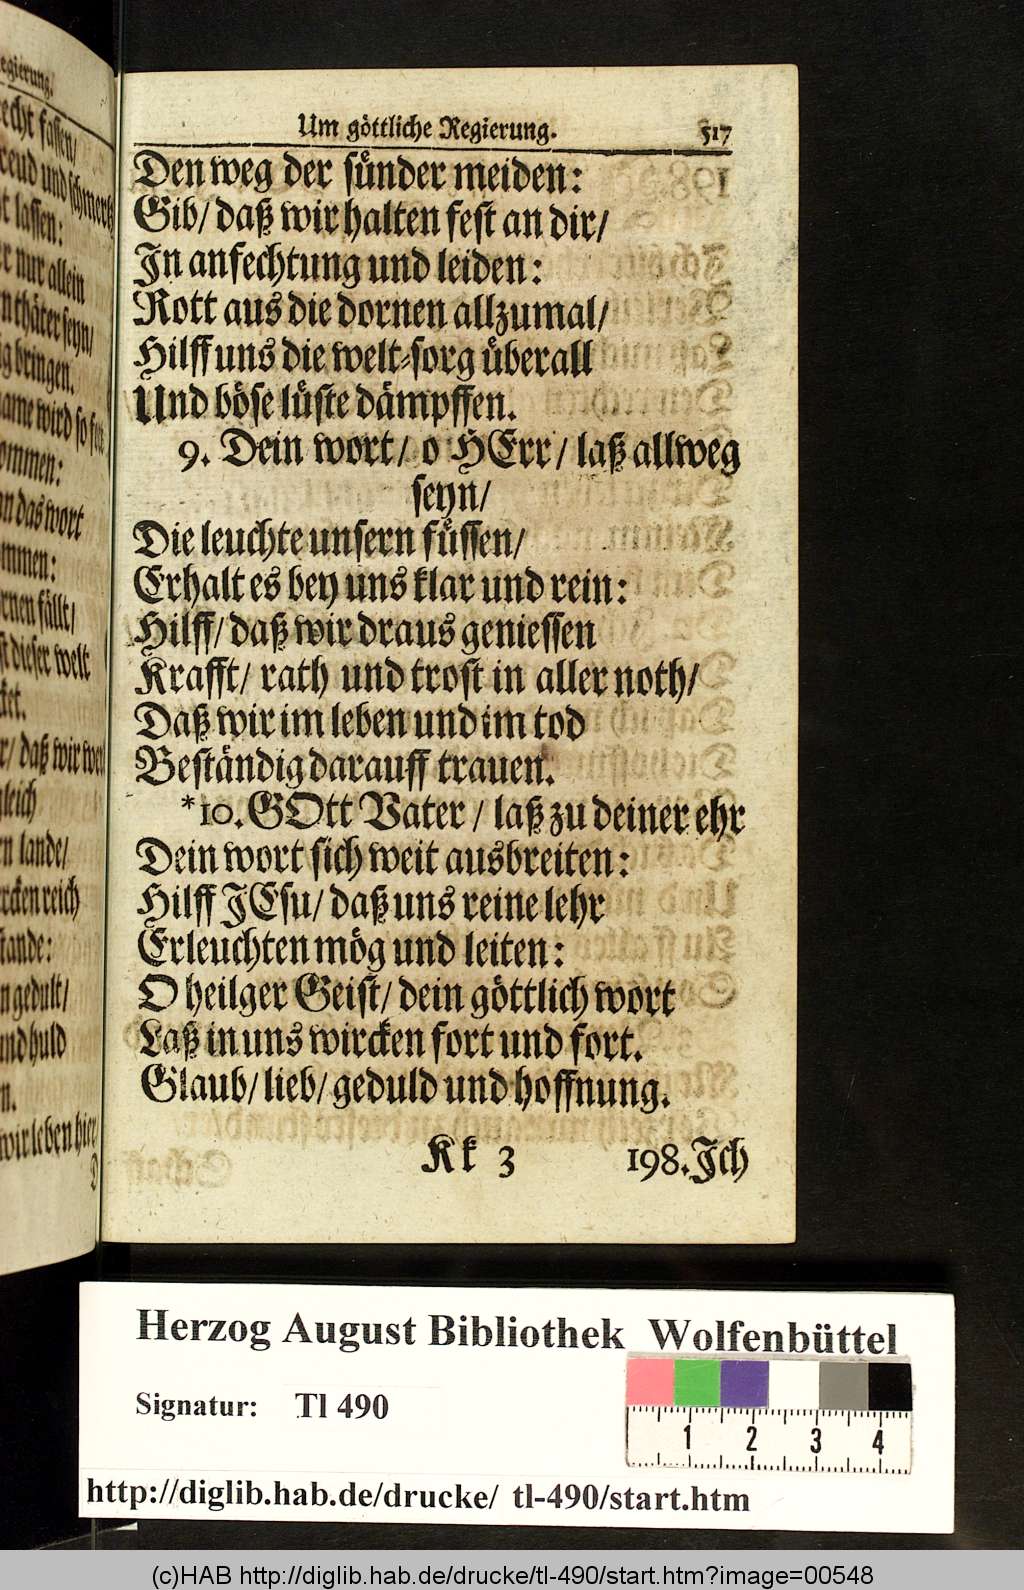 Um göttliche Regierung. 517
Den weg der sünder meiden:
Gib/ daß wir halten fest an dir/
In anfechtung und leiden:
Rott aus die dornen allzumal/
Hilff uns die welt-sorg überall
Und böse lüste dämpffen.
9. Dein wort/ o HErr/ laß allweg
seyn/
Die leuchte unsern füssen/
Erhalt es bey uns klar und rein:
Hilff/ daß wir draus geniessen
Krafft/ rath und trost in aller noth/
Daß wir im leben und im tod
Beständig darauff trauen.
*10. GOtt Vater / laß zu deiner ehr
Dein wort sich weit ausbreiten:
Hilff JEsu/ daß uns reine lehr
Erleuchten mög und leiten:
O heilger Geist/ dein göttlich wort
Laß in uns wircken fort und fort.
Glaub/ lieb/ geduld und hoffnung.
Kk 3 198. Ich
recht fassen/
freud und schmertz
lassen:
nur allein
thäter seyn/
bringen.
wird so
kommen:
das wort
fällt/
dieser welt
daß wir
gleich
lande/
reich
gedult/
und huld
wir leben hier/
D
Herzog August Bibliothek Wolfenbüttel
Signatur: Tl 490
1 2 3 4
http://diglib.hab.de/drucke/ tl-490/start.htm
(c)HAB http://diglib.hab.de/drucke/tl-490/start.htm?image=00548